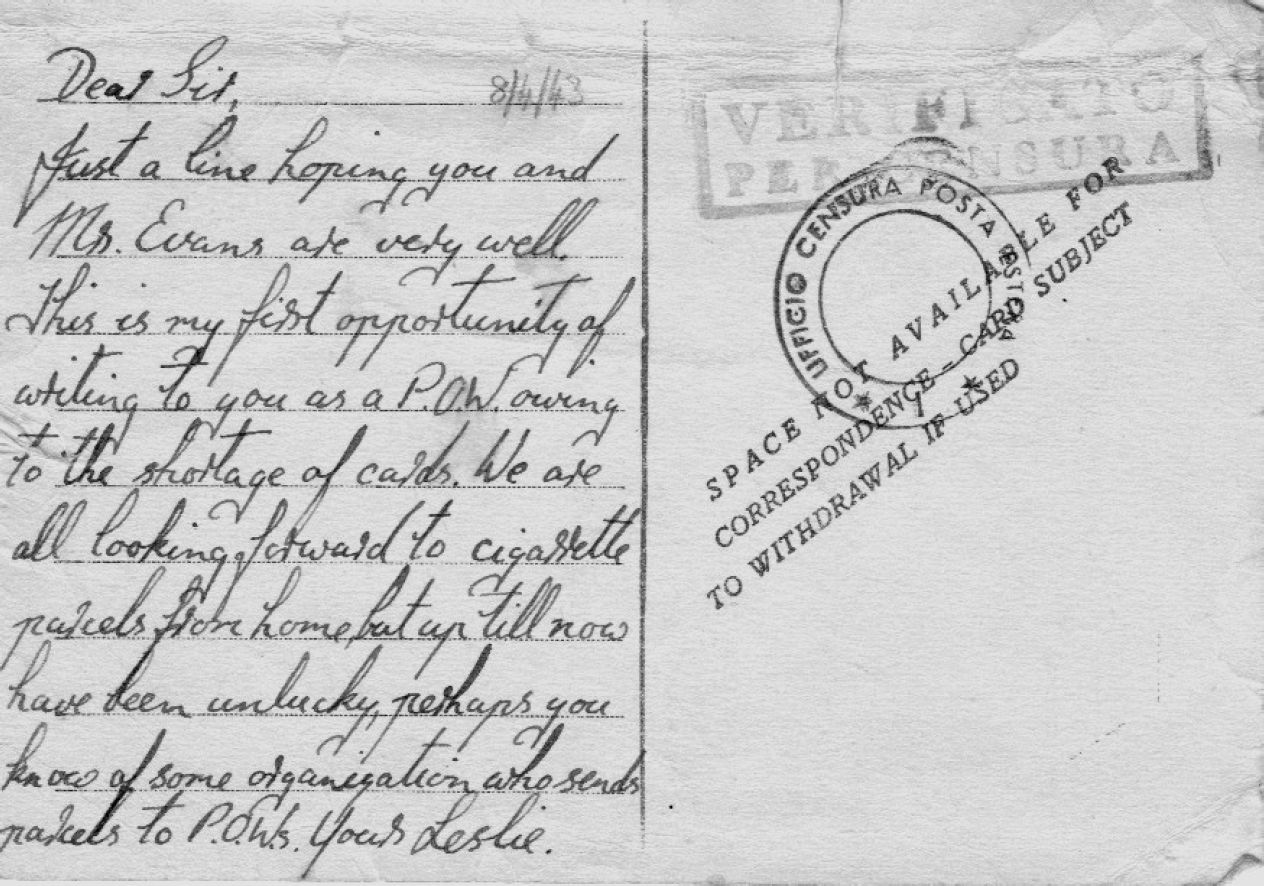 Dear Sir,
8/4/43
Just a line hoping you and
Mrs. Evans are very well.
This is my first opportunity of
writing to you as a P.O.W. owing
to the shortage of cards. We are
all looking forward to cigarette
parcels from home, but up till now
have been unlucky, perhaps you
know of some organization who sends
parcels to P.O.W.s. Yours Leslie.
VERIFICATO
PER CENSURA
UFFICIO CENSURA POSTA ESTERA
1
SPACE NOT AVAILABLE FOR
CORRESPONDENCE – CARD SUBJECT
TO WITHDRAWAL IF USED